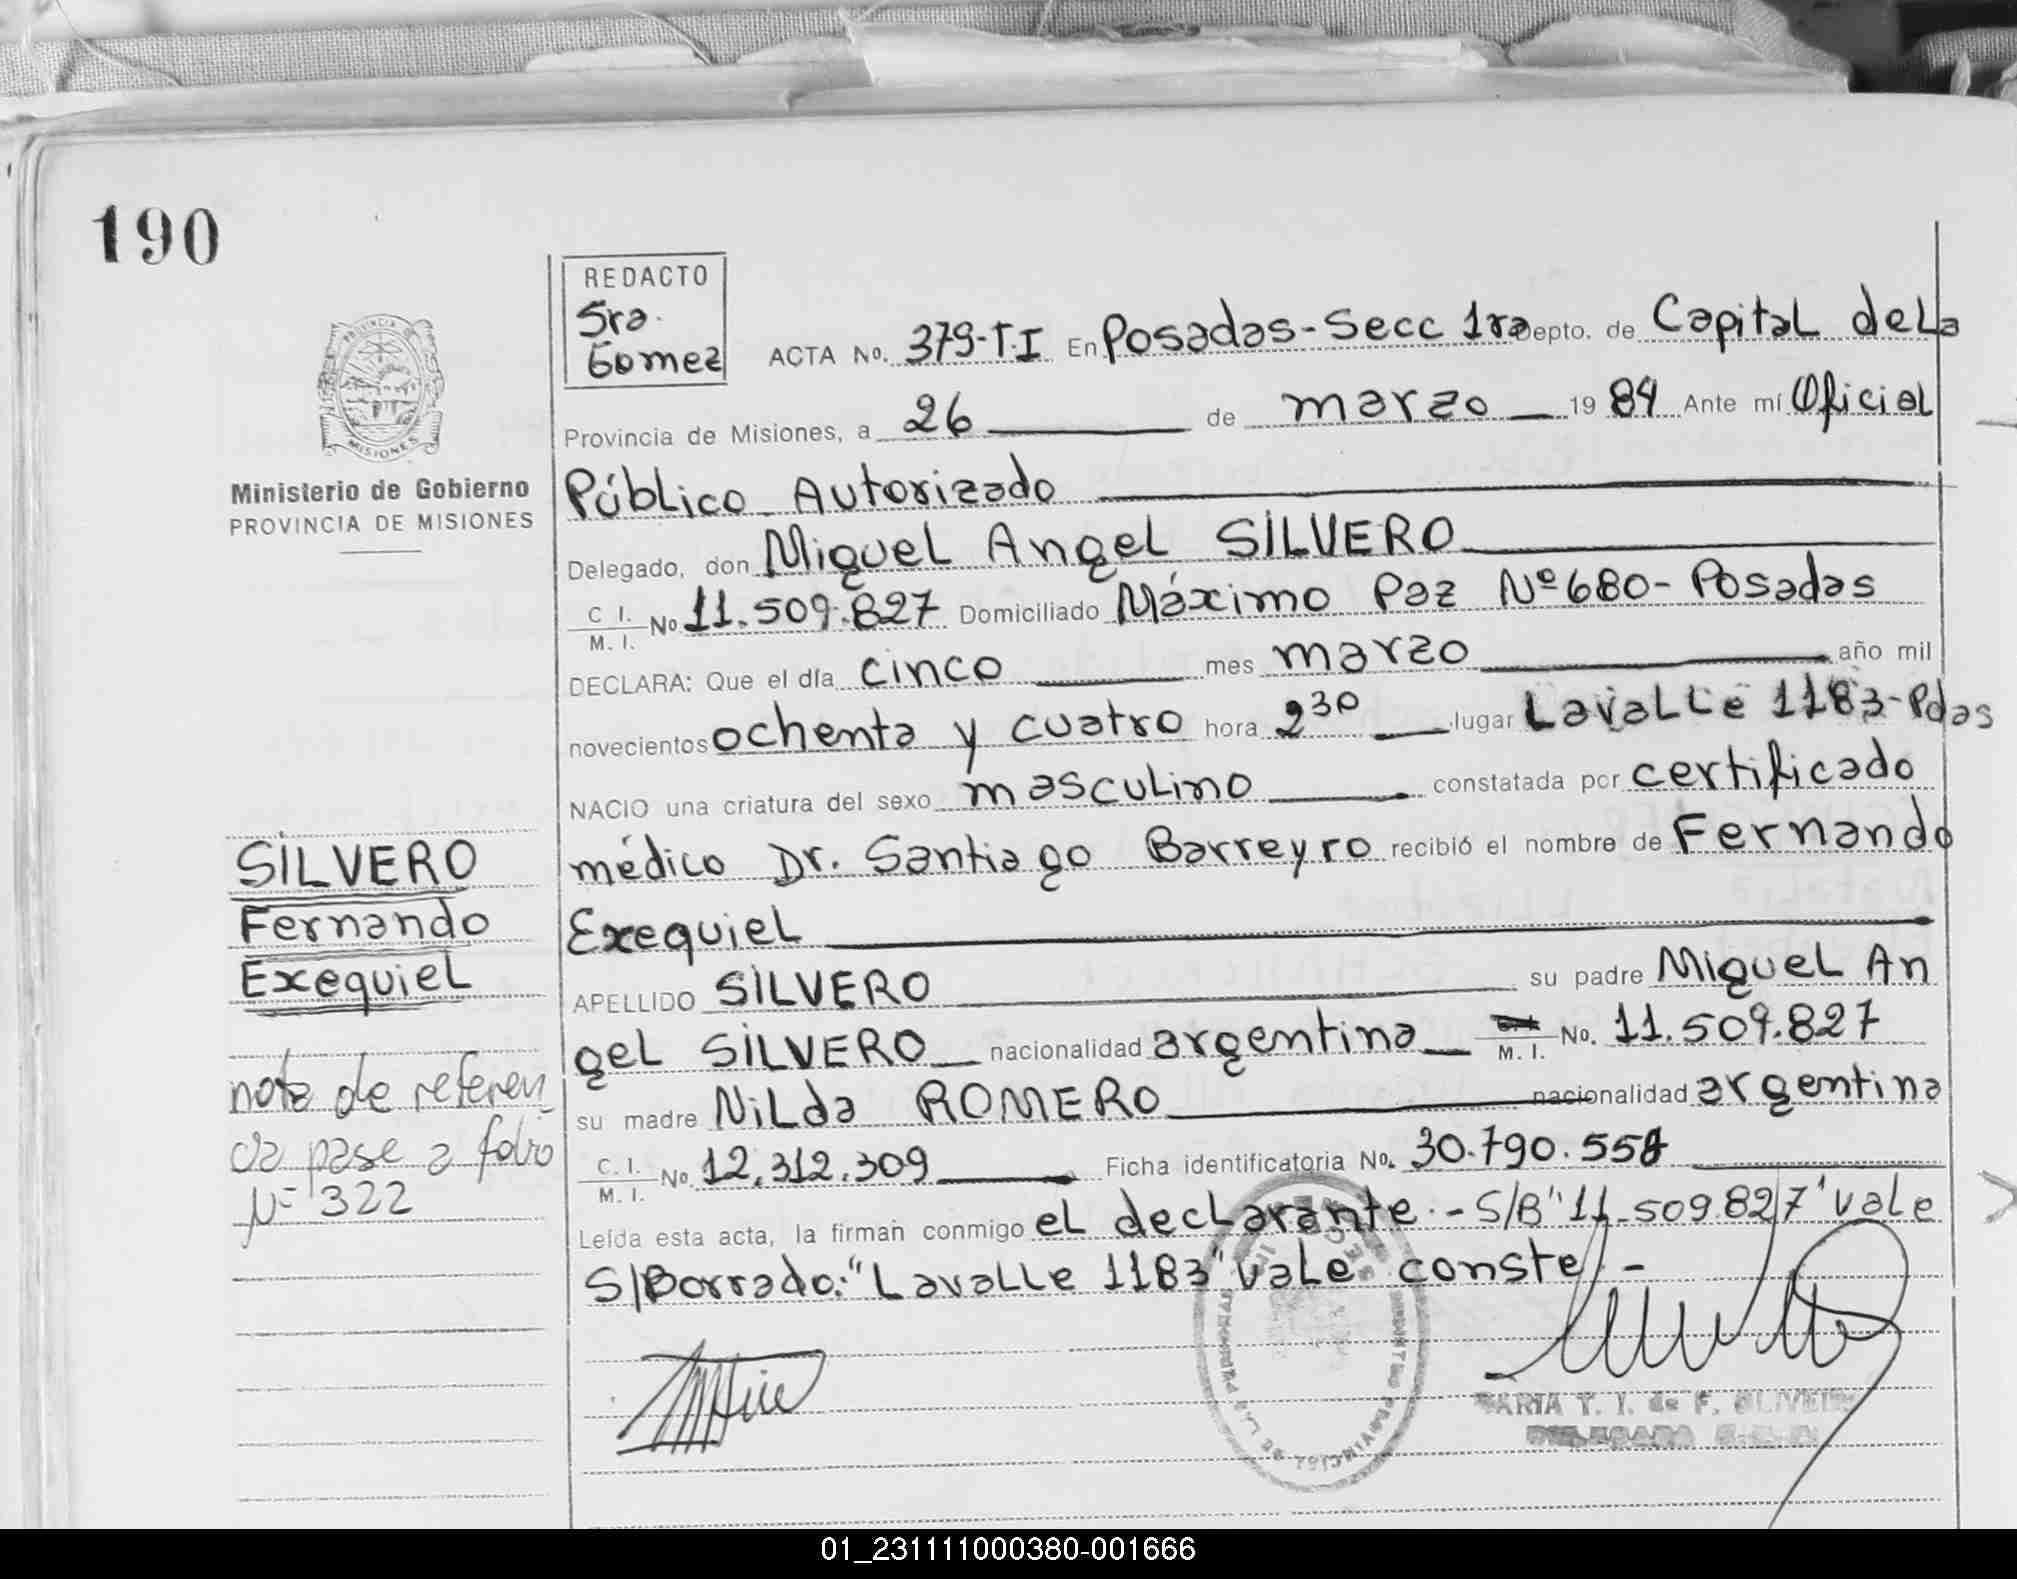 190
REDACTO
Sra.
Gomez
ACTA No. 379-T.I En Posadas-Secc 1ra Depto. de Capital de La
Provincia de Misiones, a 26 de marzo 1984 Ante mí Oficial
PROVINCIA DE MISIONES
Ministerio de Gobierno
PROVINCIA DE MISIONES
Público Autorizado
Delegado, don Miguel Angel SILVERO
C. I. M. I. No 11.509.827 Domiciliado Máximo Paz Nº 680- Posadas
DECLARA: Que el día cinco mes marzo año mil
novecientos ochenta y cuatro hora 2 30 lugar Lavalle 1183-Pdas
NACIO una criatura del sexo masculino constatada por certificado
médico Dr. Santiago Barreyro recibió el nombre de Fernando
Exequiel
APELLIDO SILVERO su padre Miguel An
gel SILVERO nacionalidad argentina M. I. No. 11.509.827
su madre Nilda ROMERO nacionalidad argentina
C. I. M. I. No. 12.312.309 Ficha identificatoria No. 30.790.558
Leída esta acta, la firman conmigo el declarante.- S/B "11.509.827" vale
S/Borrado: "Lavalle 1183" vale conste.-
SILVERO
Fernando
Exequiel
nota de referen
cia pase a folio
Nº 322
MARIA Y. I. de F. OLIVEIRA
DELEGADA
01_231111000380-001666